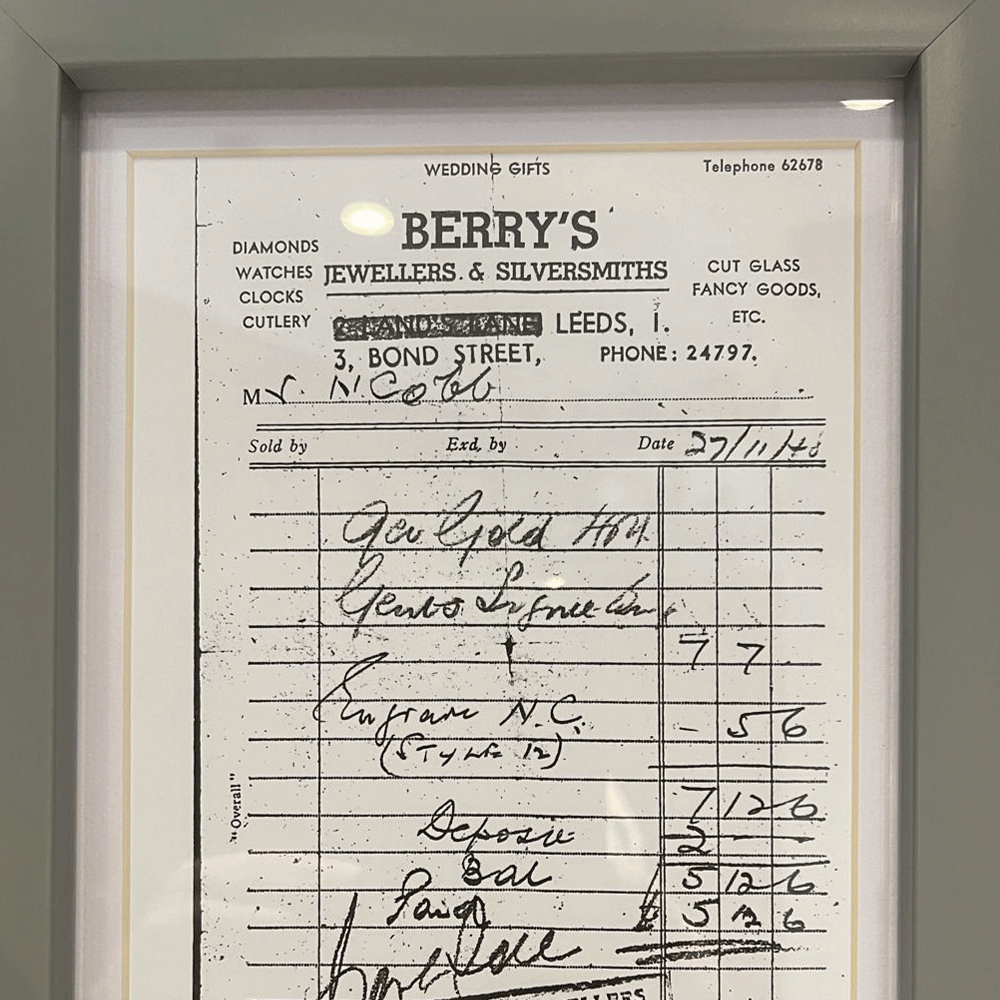 WEDDING GIFTS
Telephone 62678
BERRY'S
JEWELLERS & SILVERSMITHS
DIAMONDS
WATCHES
CLOCKS
CUTLERY
CUT GLASS
FANCY GOODS,
ETC.
LEEDS, 1.
3, BOND STREET, PHONE: 24797.
Mr. N. Cobb
Sold by Exd. by Date 27/11/48
9ct Gold HM.
Gents Signet
7 7
Engrave N.C. - 5 6
(STYLE 12)
7 12 6
Deposit 2
Bal 5 12 6
Paid £ 5 12 6
"Overall"